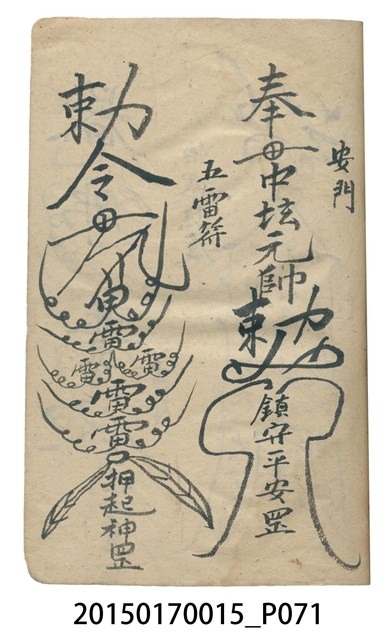 安門
奉
中坛元帥
勅令
鎮守平安罡
五雷符
勅令
雷
雷雷
雷
雷
押起神罡
20150170015_P071